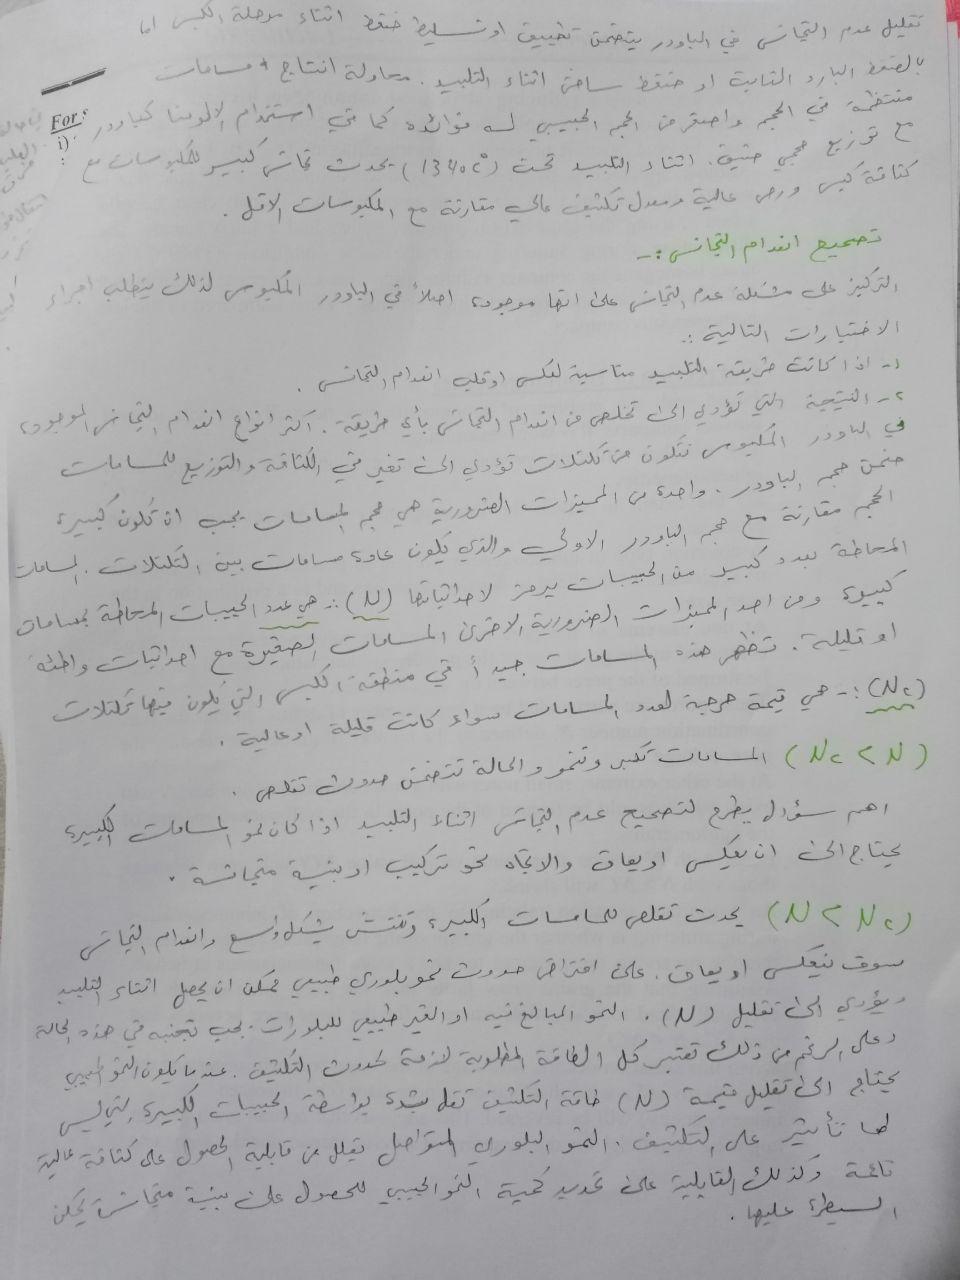 تقليل عدم التجانس في الباودر يتضمن تطبيق او تسليط ضغط اثناء مرحلة الكبس اما
بالضغط البارد الثابت او ضغط ساخن اثناء التلبيد. محاولة انتاج مسامات
منتظمة في الحجم واصغر من الحجم الحبيبي له فوائده كما في استخدام الالومينا كباودر
مع توزيع حجمي ضيق. اثناء التلبيد تحت (1340 c°) يحدث تجانس كبير للمكبوسات مع
كثافة كبس ورص عالية ومعدل تكثيف عالي مقارنة مع المكبوسات الاقل.
For
i)
تصحيح انعدام التجانس :-
التركيز على مشكلة عدم التجانس على انها موجودة اصلاً في الباودر المكبوس لذلك يتطلب اجراء
الاختبارات التالية :-
١- اذا كانت طريقة التلبيد مناسبة لعكس او قلب انعدام التجانس.
٢- النتيجة التي تؤدي الى تخلص من انعدام التجانس بأي طريقة. اكثر انواع انعدام التجانس الموجودة
في الباودر المكبوس تتكون من تكتلات تؤدي الى تغير في الكثافة والتوزيع للمسامات
ضمن حجم الباودر. واحدة من المميزات الضرورية هي حجم المسامات يجب ان تكون كبيرة
الحجم مقارنة مع حجم الباودر الاولي والذي يكون عادة مسامات بين التكتلات. المسامات
المحاطة بعدد كبير من الحبيبات يرمز لاحداثياتها (N) :- هي عدد الحبيبات المحاطة بمسامات
كبيرة ومن احد المميزات الضرورية الاخرى المسامات الصغيرة مع احداثيات واطئة
او قليلة. تظهر هذه المسامات جيداً في منطقة الكبس التي يكون فيها تكتلات
(Nc) :- هي قيمة حرجة لعدد المسامات سواء كانت قليلة او عالية.
(N > Nc) المسامات تكبر وتنمو والحالة تتضمن حدوث تقلص.
اهم سؤال يطرح لتصحيح عدم التجانس اثناء التلبيد اذا كان نمو المسامات الكبيرة
يحتاج الى ان يعكس او يعاق والاتجاه نحو تركيب او بنية متجانسة.
(N < Nc) يحدث تقلص للمسامات الكبيرة وتفتش بشكل واسع وانعدام التجانس
سوف ينعكس او يعاق. على افتراض حدوث نمو بلوري طبيعي ممكن ان يحصل اثناء التلبيد
ويؤدي الى تقليل (N). النمو المبالغ فيه او الغير طبيعي للبلورات يجب تجنبه في هذه الحالة
وعلى الرغم من ذلك تعتبر كل الطاقة المطلوبة لازمة لحدوث التكثيف. عندما يكون النمو الحبيبي
يحتاج الى تقليل قيمة (N) طاقة التكثيف تقل بشدة بواسطة الحبيبات الكبيرة التي ليس
لها تأثير على التكثيف. النمو البلوري المتواصل يقلل من قابلية الحصول على كثافة عالية
تامة وكذلك القابلية على تحديد كمية النمو الحبيبي للحصول على بنية متجانسة يمكن
السيطرة عليها.